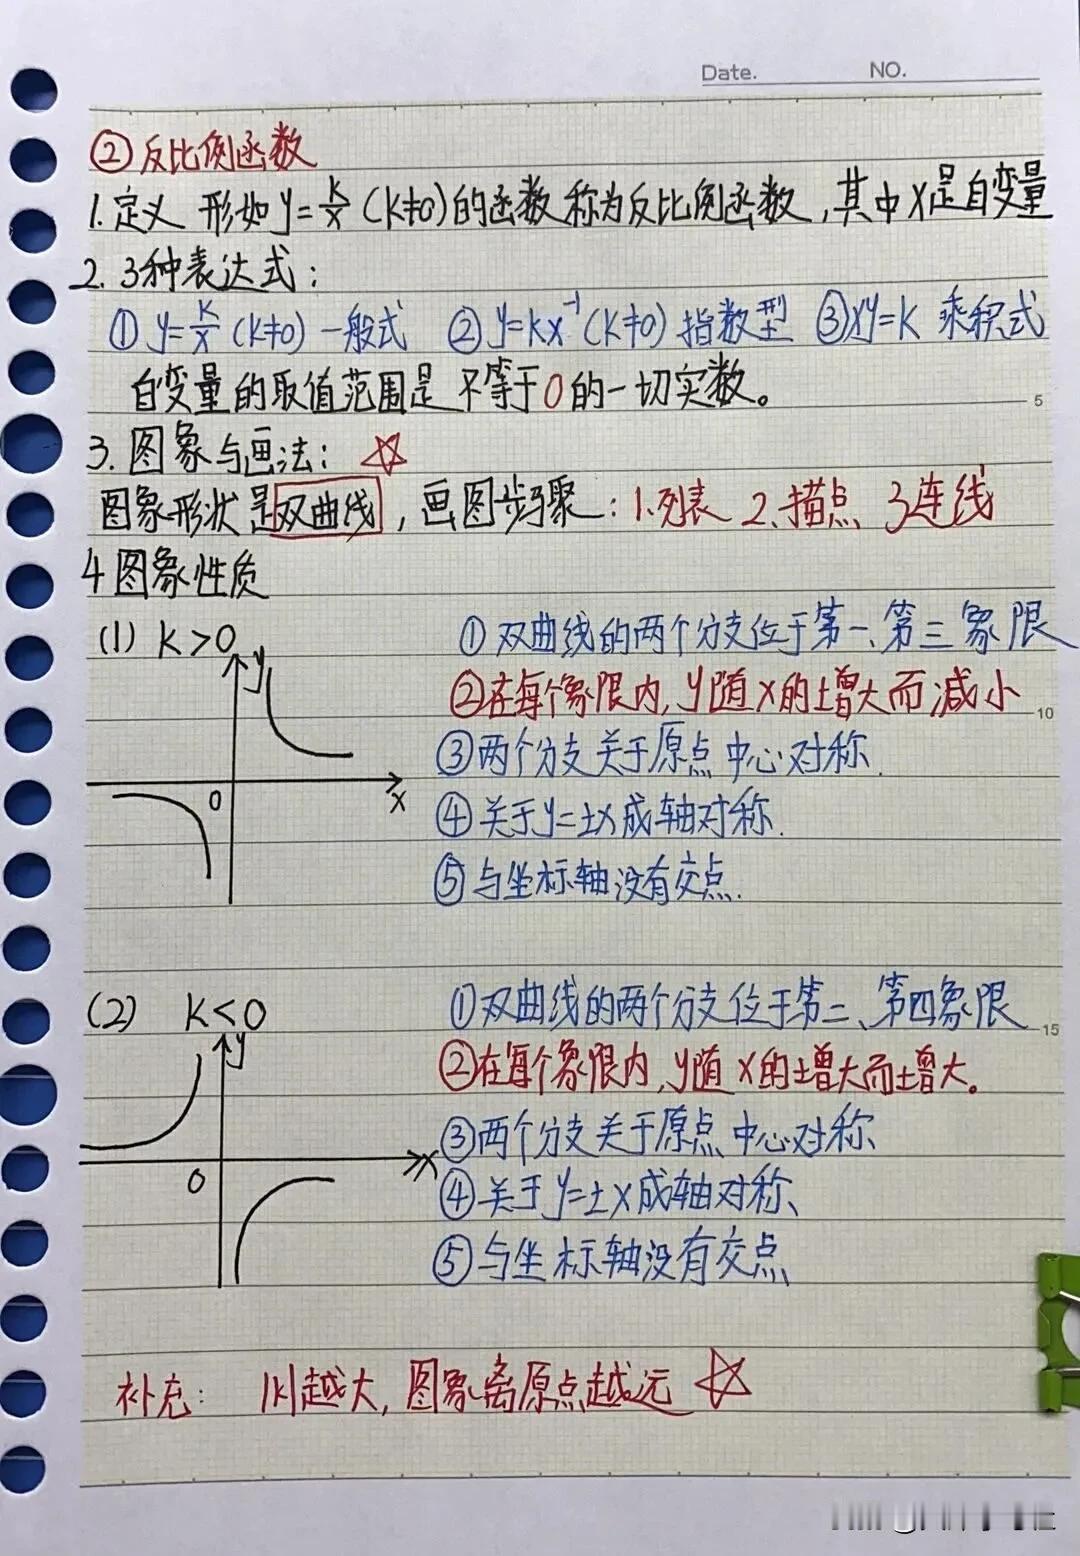 Date. NO.
②反比例函数
1.定义 形如y=k/x(k≠0)的函数称为反比例函数,其中x是自变量
2.3种表达式:
①y=k/x(k≠0)一般式 ②y=kx⁻¹(k≠0)指数型 ③xy=k 乘积式
自变量的取值范围是不等于0的一切实数。
5
3.图象与画法:
图象形状是双曲线,画图步骤:1.列表 2.描点 3连线
4图象性质
(1) k>0
y
x
0
①双曲线的两个分支位于第一、第三象限
②在每个象限内,y随x的增大而减小
10
③两个分支关于原点中心对称.
④关于y=±x成轴对称.
⑤与坐标轴没有交点.
(2) k<0
y
x
0
①双曲线的两个分支位于第二、第四象限
15
②在每个象限内,y随x的增大而增大。
③两个分支关于原点中心对称
④关于y=±x成轴对称、
⑤与坐标轴没有交点
补充: |k|越大,图象离原点越远